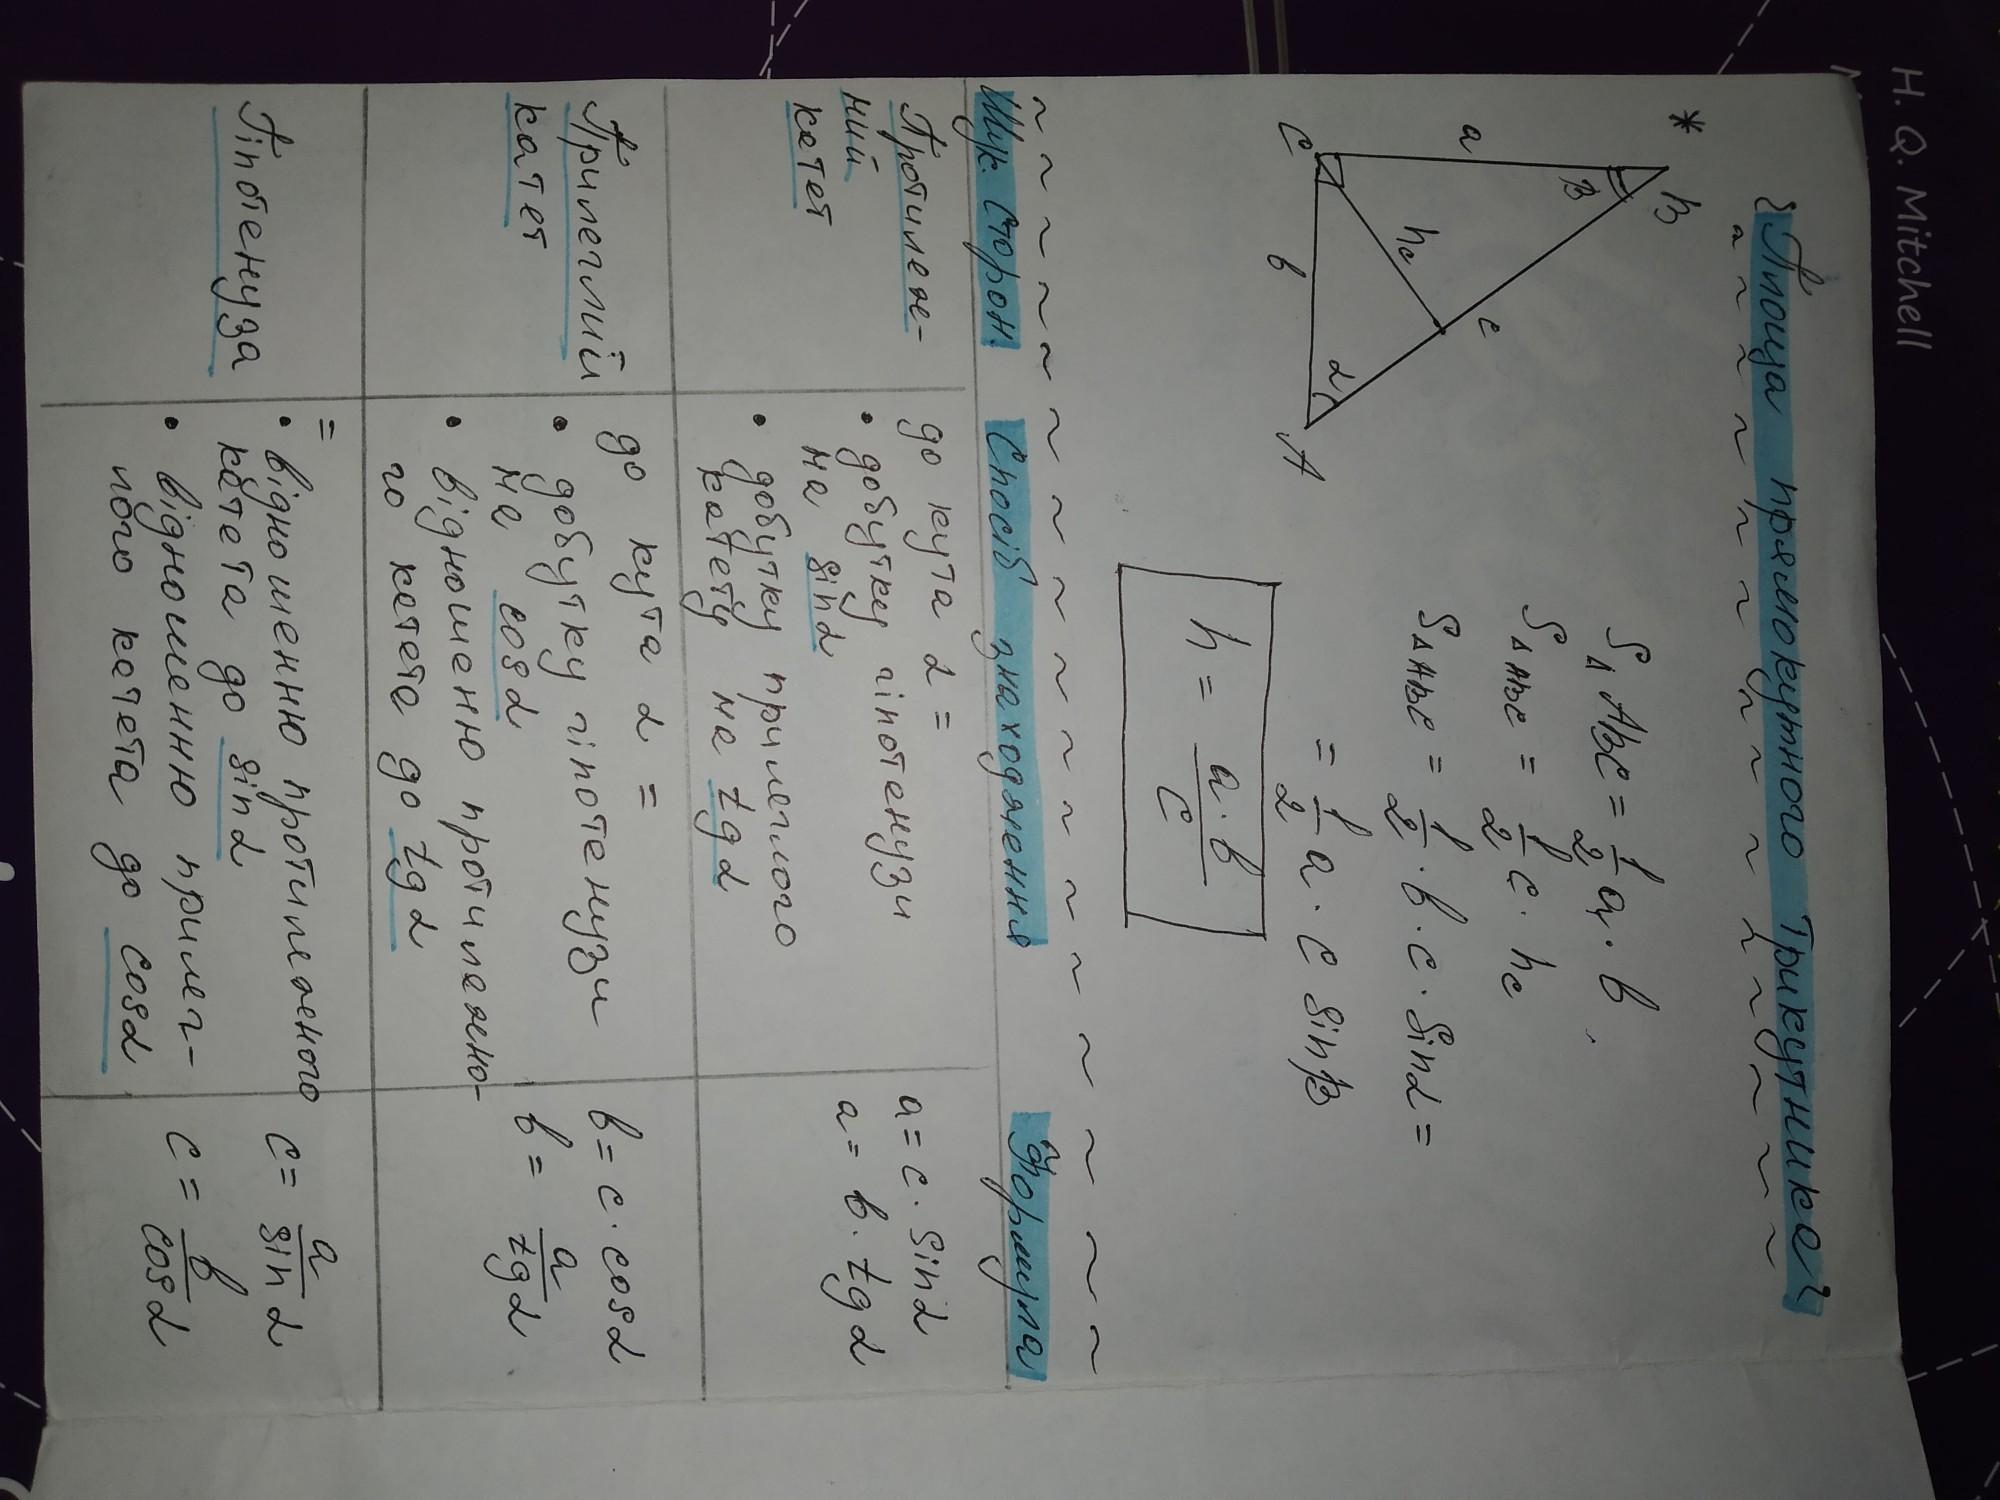 H. Q. Mitchell
{Площа прямокутного трикутника}
*
B
β
a
c
hc
C
b
α
A
S△ABC = 1/2 a · b
S△ABC = 1/2 c · hc
S△ABC = 1/2 · b · c · sinα =
= 1/2 a · c sinβ
h = a · b / c
Шук. сторон. Спосіб знаходження Формула
Протилеж-
ний
катет
до кута α =
• добутку гіпотенузи
на sinα
• добутку прилеглого
катету на tgα
a = c · sinα
a = b · tgα
Прилеглий
катет
до кута α =
• добутку гіпотенузи
на cosα
• відношенню протилежно-
го катета до tgα
b = c · cosα
b = a / tgα
Гіпотенуза
=
• відношенню протилежного
катета до sinα
• відношенню прилег-
лого катета до cosα
c = a / sinα
c = b / cosα